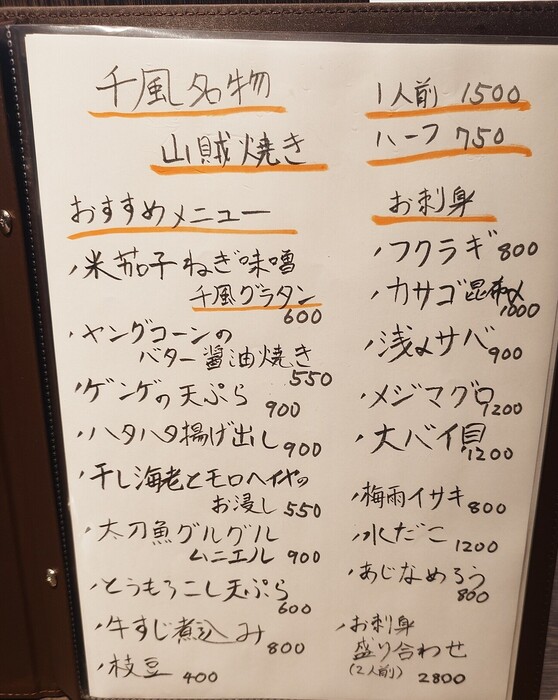 千風名物
山賊焼き
1人前 1500
ハーフ 750
おすすめメニュー
米茄子ねぎ味噌
千風グラタン
600
ヤングコーンの
バター醤油焼き
550
ゲンゲの天ぷら 900
ハタハタ揚げ出し 900
干し海老とモロヘイヤの
お浸し 550
太刀魚グルグル
ムニエル 900
とうもろこし天ぷら
600
牛すじ煮込み 800
枝豆 400
お刺身
フクラギ 800
カサゴ昆布〆
1000
浅〆サバ 900
メジマグロ
1200
大バイ貝
1200
梅雨イサキ 800
水だこ 1200
あじなめろう
800
お刺身
盛り合わせ
(2人前) 2800